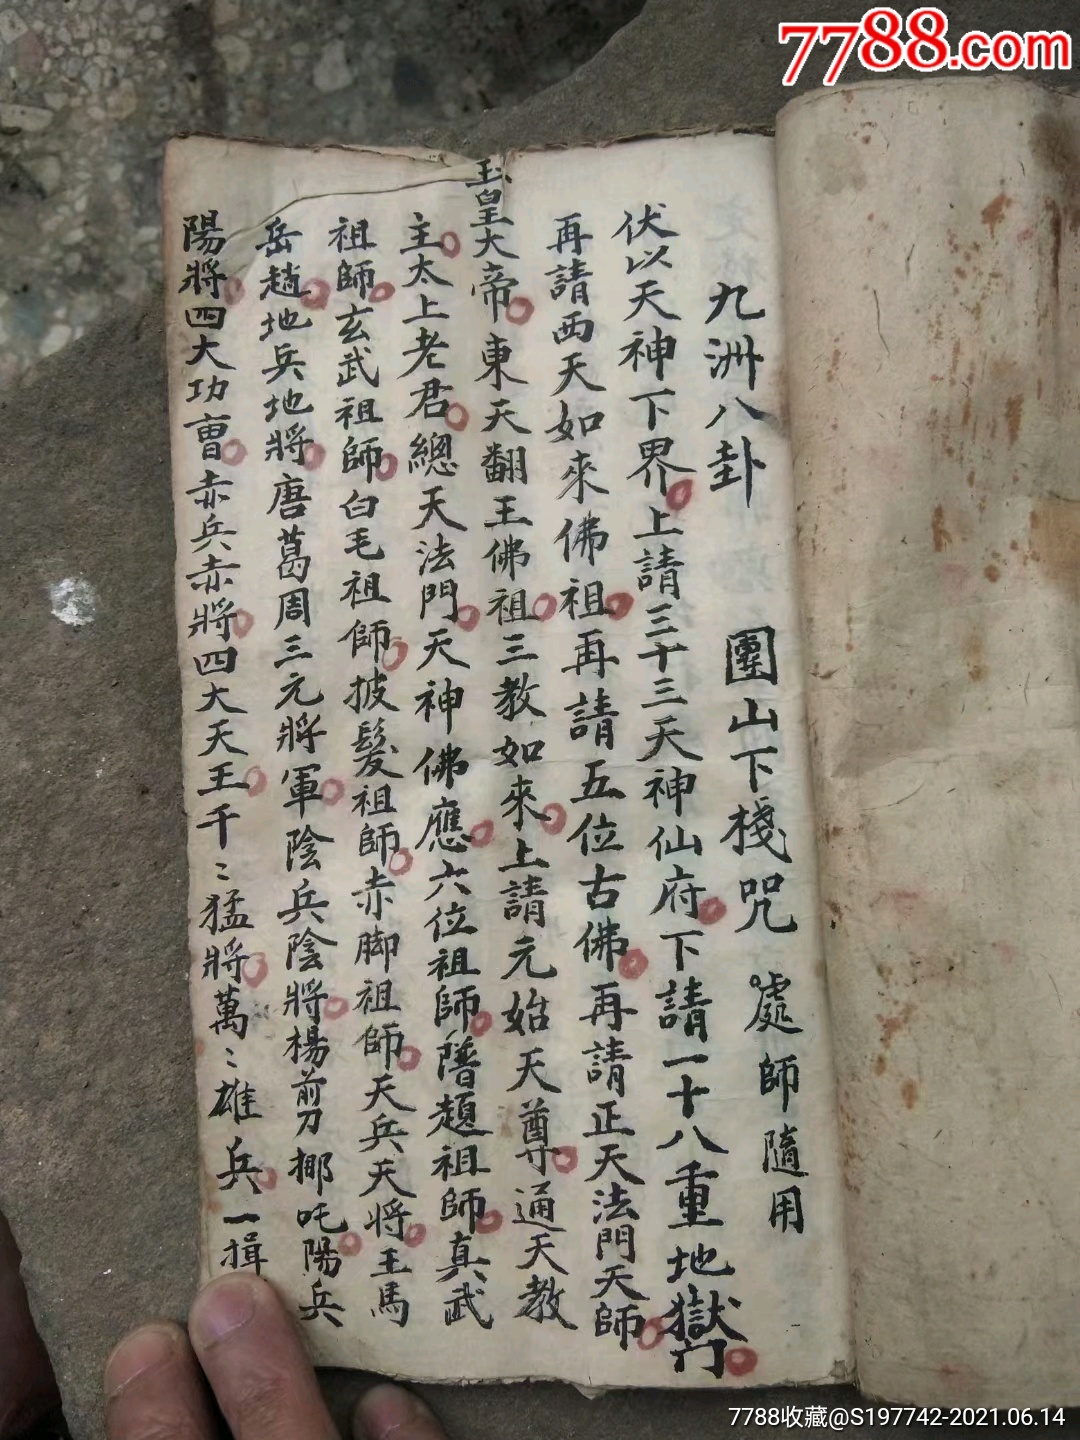 7788.com
九洲八卦 團山下棧咒 處師隨用
伏以天神下界上請三十三天神仙府下請一十八重地獄門
再請西天如來佛祖再請五位古佛再請正天法門天師
玉皇大帝東天翻王佛祖三教如來上請元始天尊通天教
主太上老君總天法門天神佛應六位祖師普題祖師真武
祖師玄武祖師白毛祖師披髮祖師赤脚祖師天兵天將王馬
岳趙地兵地將唐葛周三元將軍陰兵陰將楊剪挪吒陽兵
陽將四大功曹赤兵赤將四大天王千〻猛將萬〻雄兵一揖
7788收藏@S197742-2021.06.14